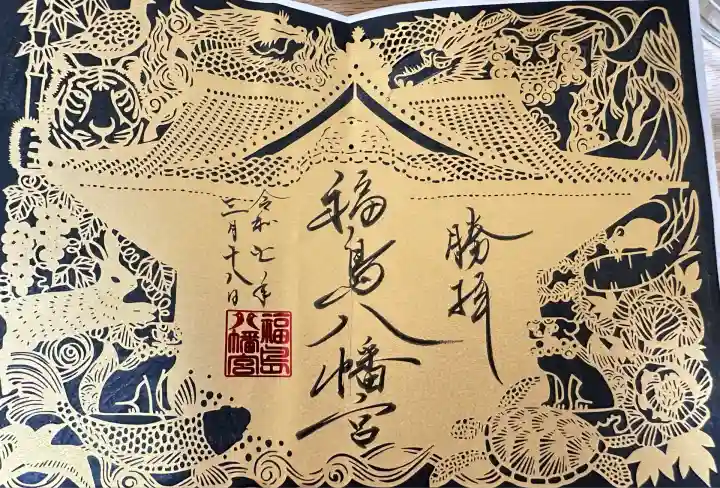 勝拝
福島八幡宮
令和七年
三月十八日
福島
八幡宮